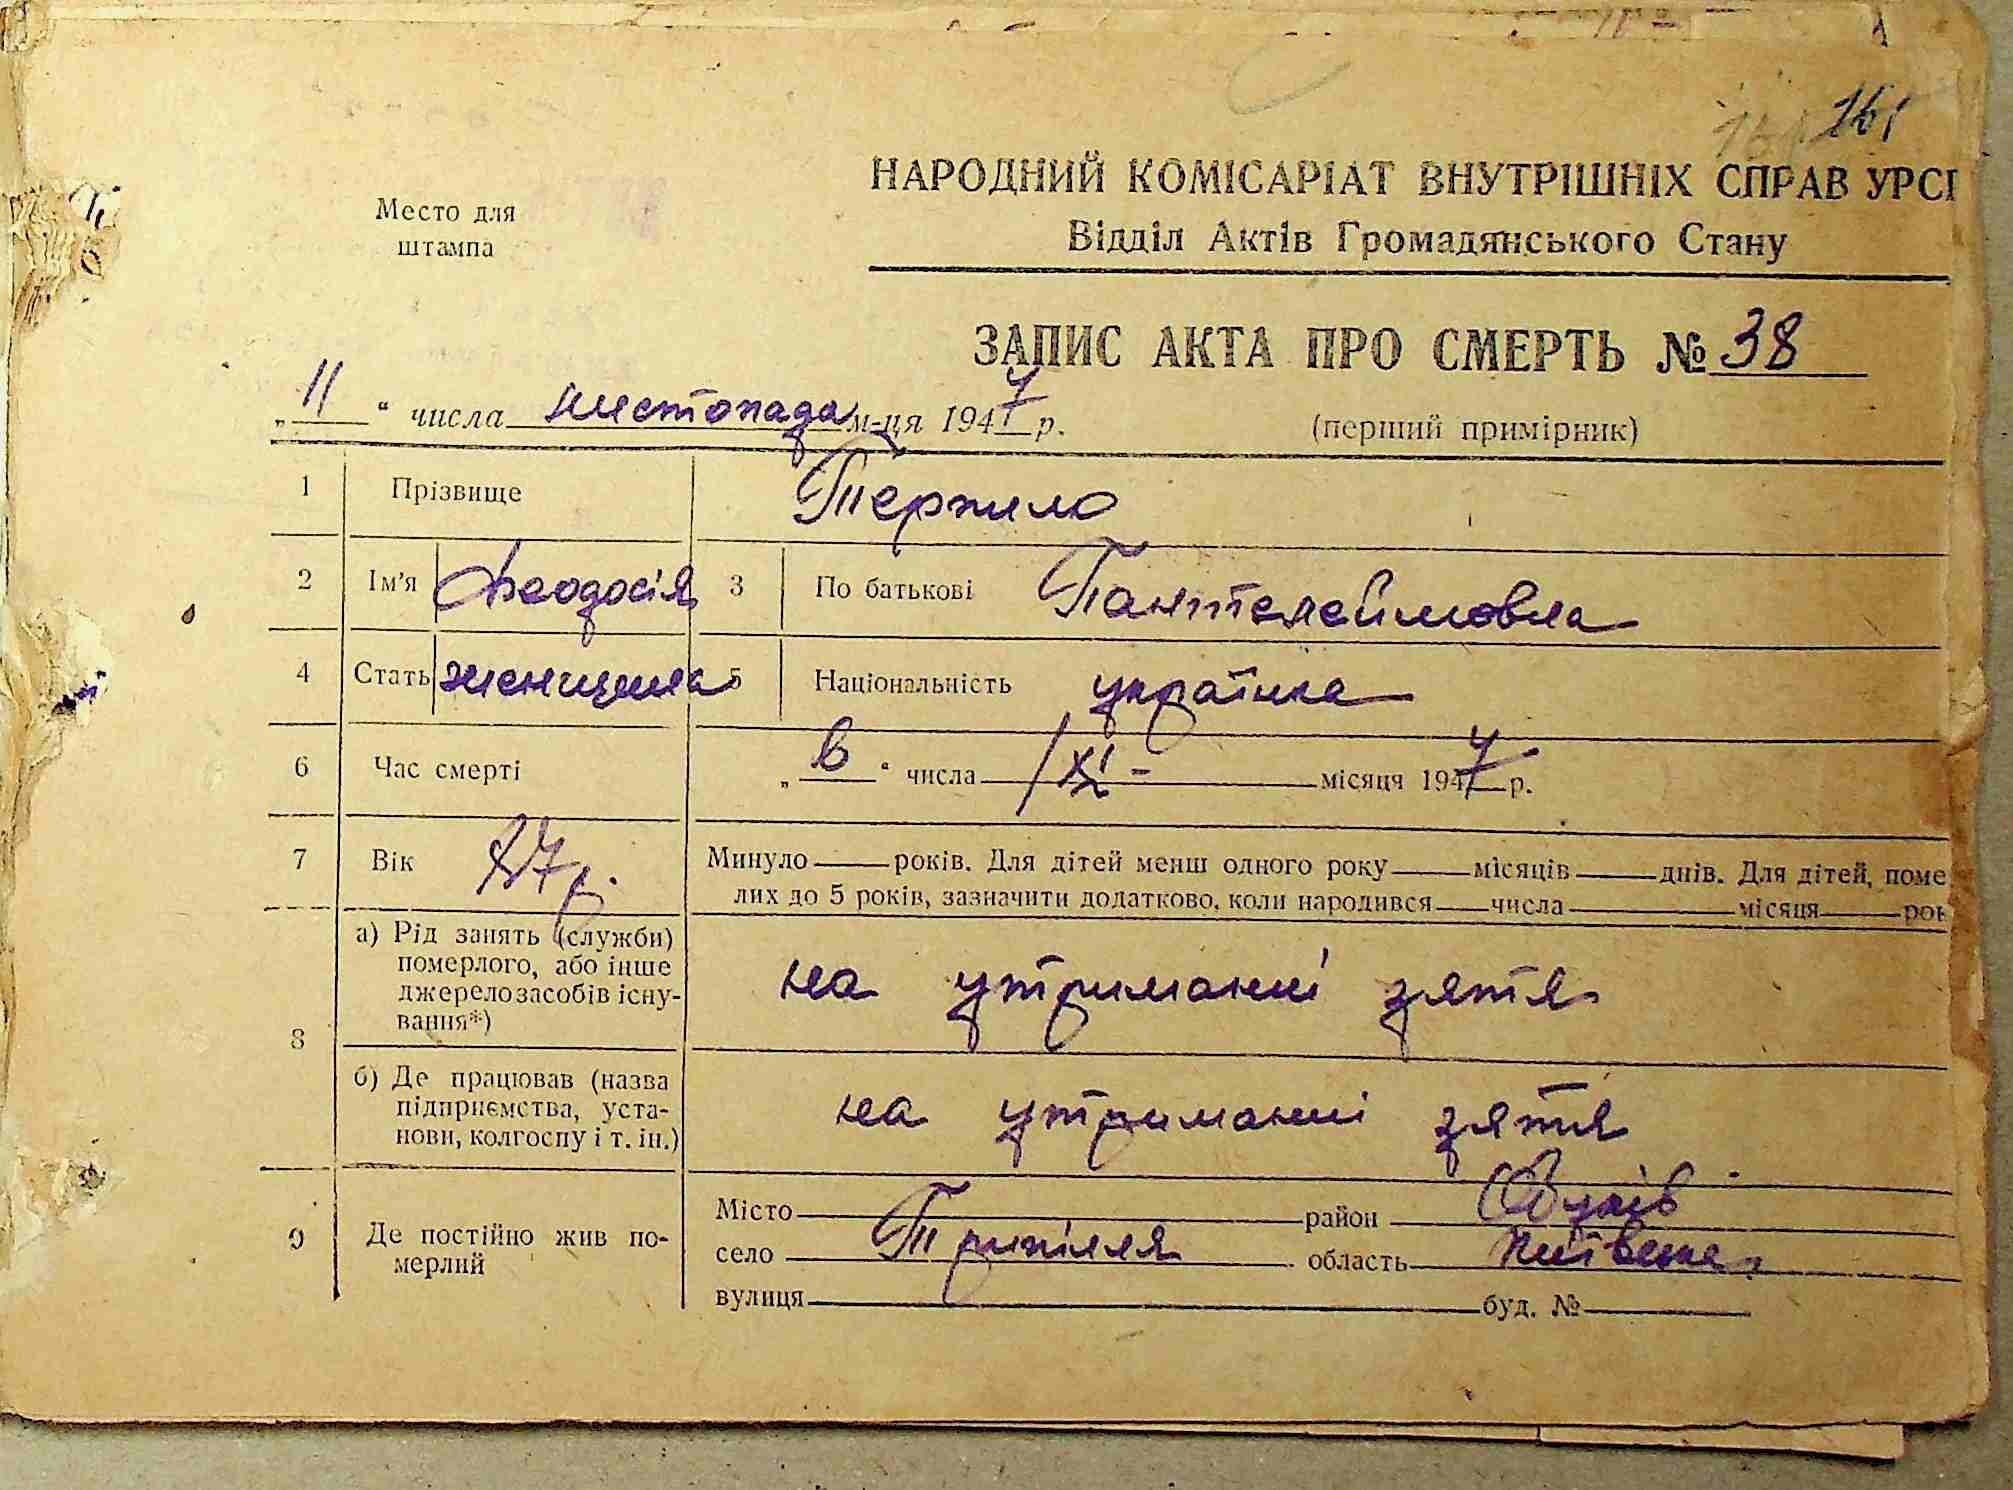 161
НАРОДНИЙ КОМІСАРІАТ ВНУТРІШНІХ СПРАВ УРСР
Место для
штампа
Відділ Актів Громадянського Стану
ЗАПИС АКТА ПРО СМЕРТЬ № 38
„ 11 “ числа листопада м-ця 1947 р. (перший примірник)
1 Прізвище Терпило
2 Ім'я Феодосія 3 По батькові Пантелеймовна
4 Стать женщина 5 Національність українка
6 Час смерті „ 6 “ числа /XI- місяця 1947 р.
7 Вік 87 р. Минуло років. Для дітей менш одного року місяців днів. Для дітей, поме
лих до 5 років, зазначити додатково, коли народився числа місяця рок
8 а) Рід занять (служби)
померлого, або інше
джерело засобів існу-
вання*) на утриманні зятя
б) Де працював (назва
підприємства, уста-
нови, колгоспу і т. ін.) на утриманні зятя
9 Де постійно жив по-
мерлий
Місто район Обухів
село Трипілля область Київська
вулиця буд. №